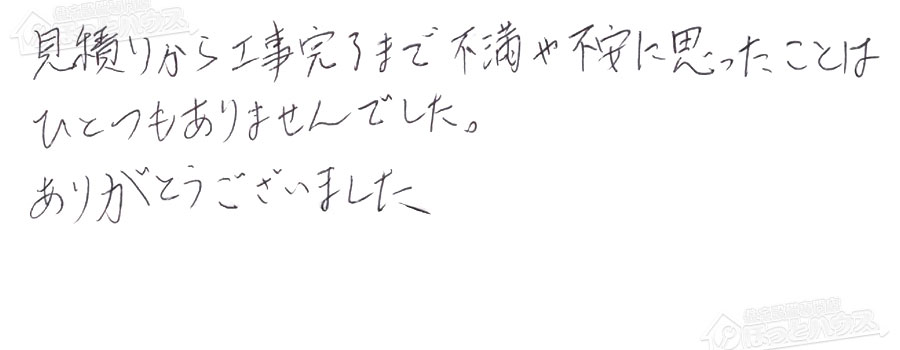 見積りから工事完了まで不満や不安に思ったことは
ひとつもありませんでした。
ありがとうございました
ほっとハウス